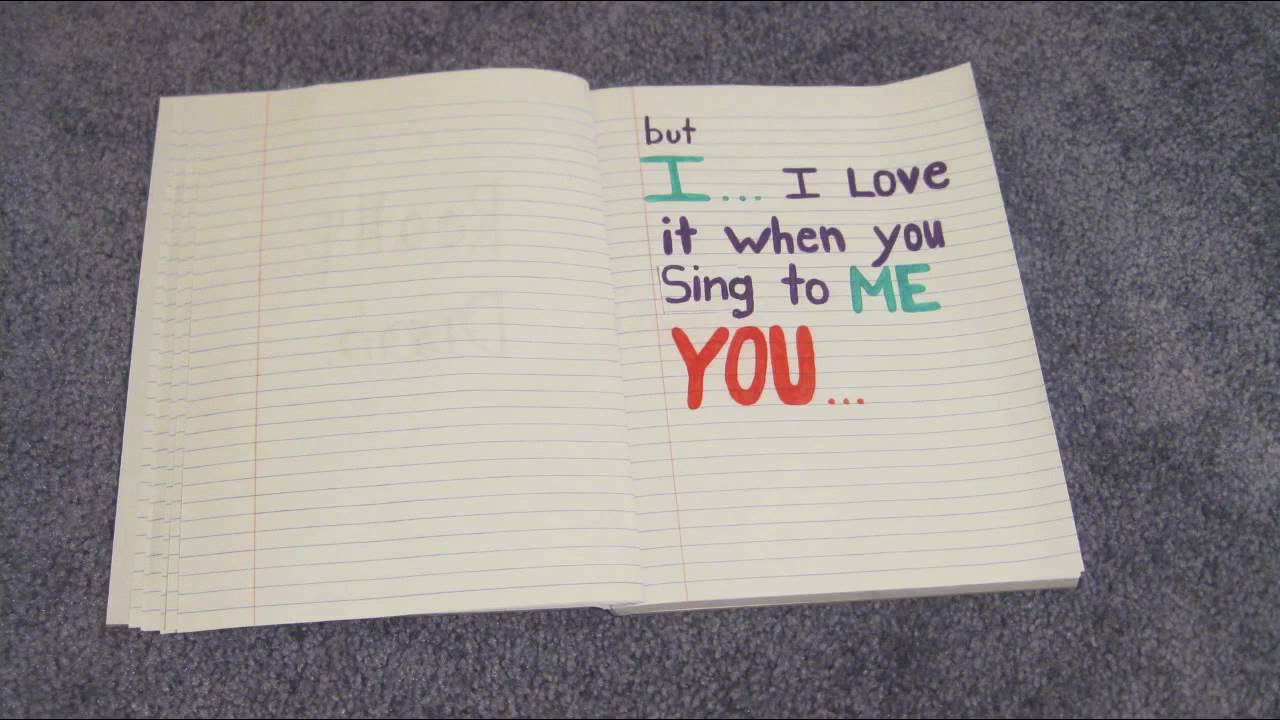 but
I... I Love
it when you
Sing to ME
YOU...